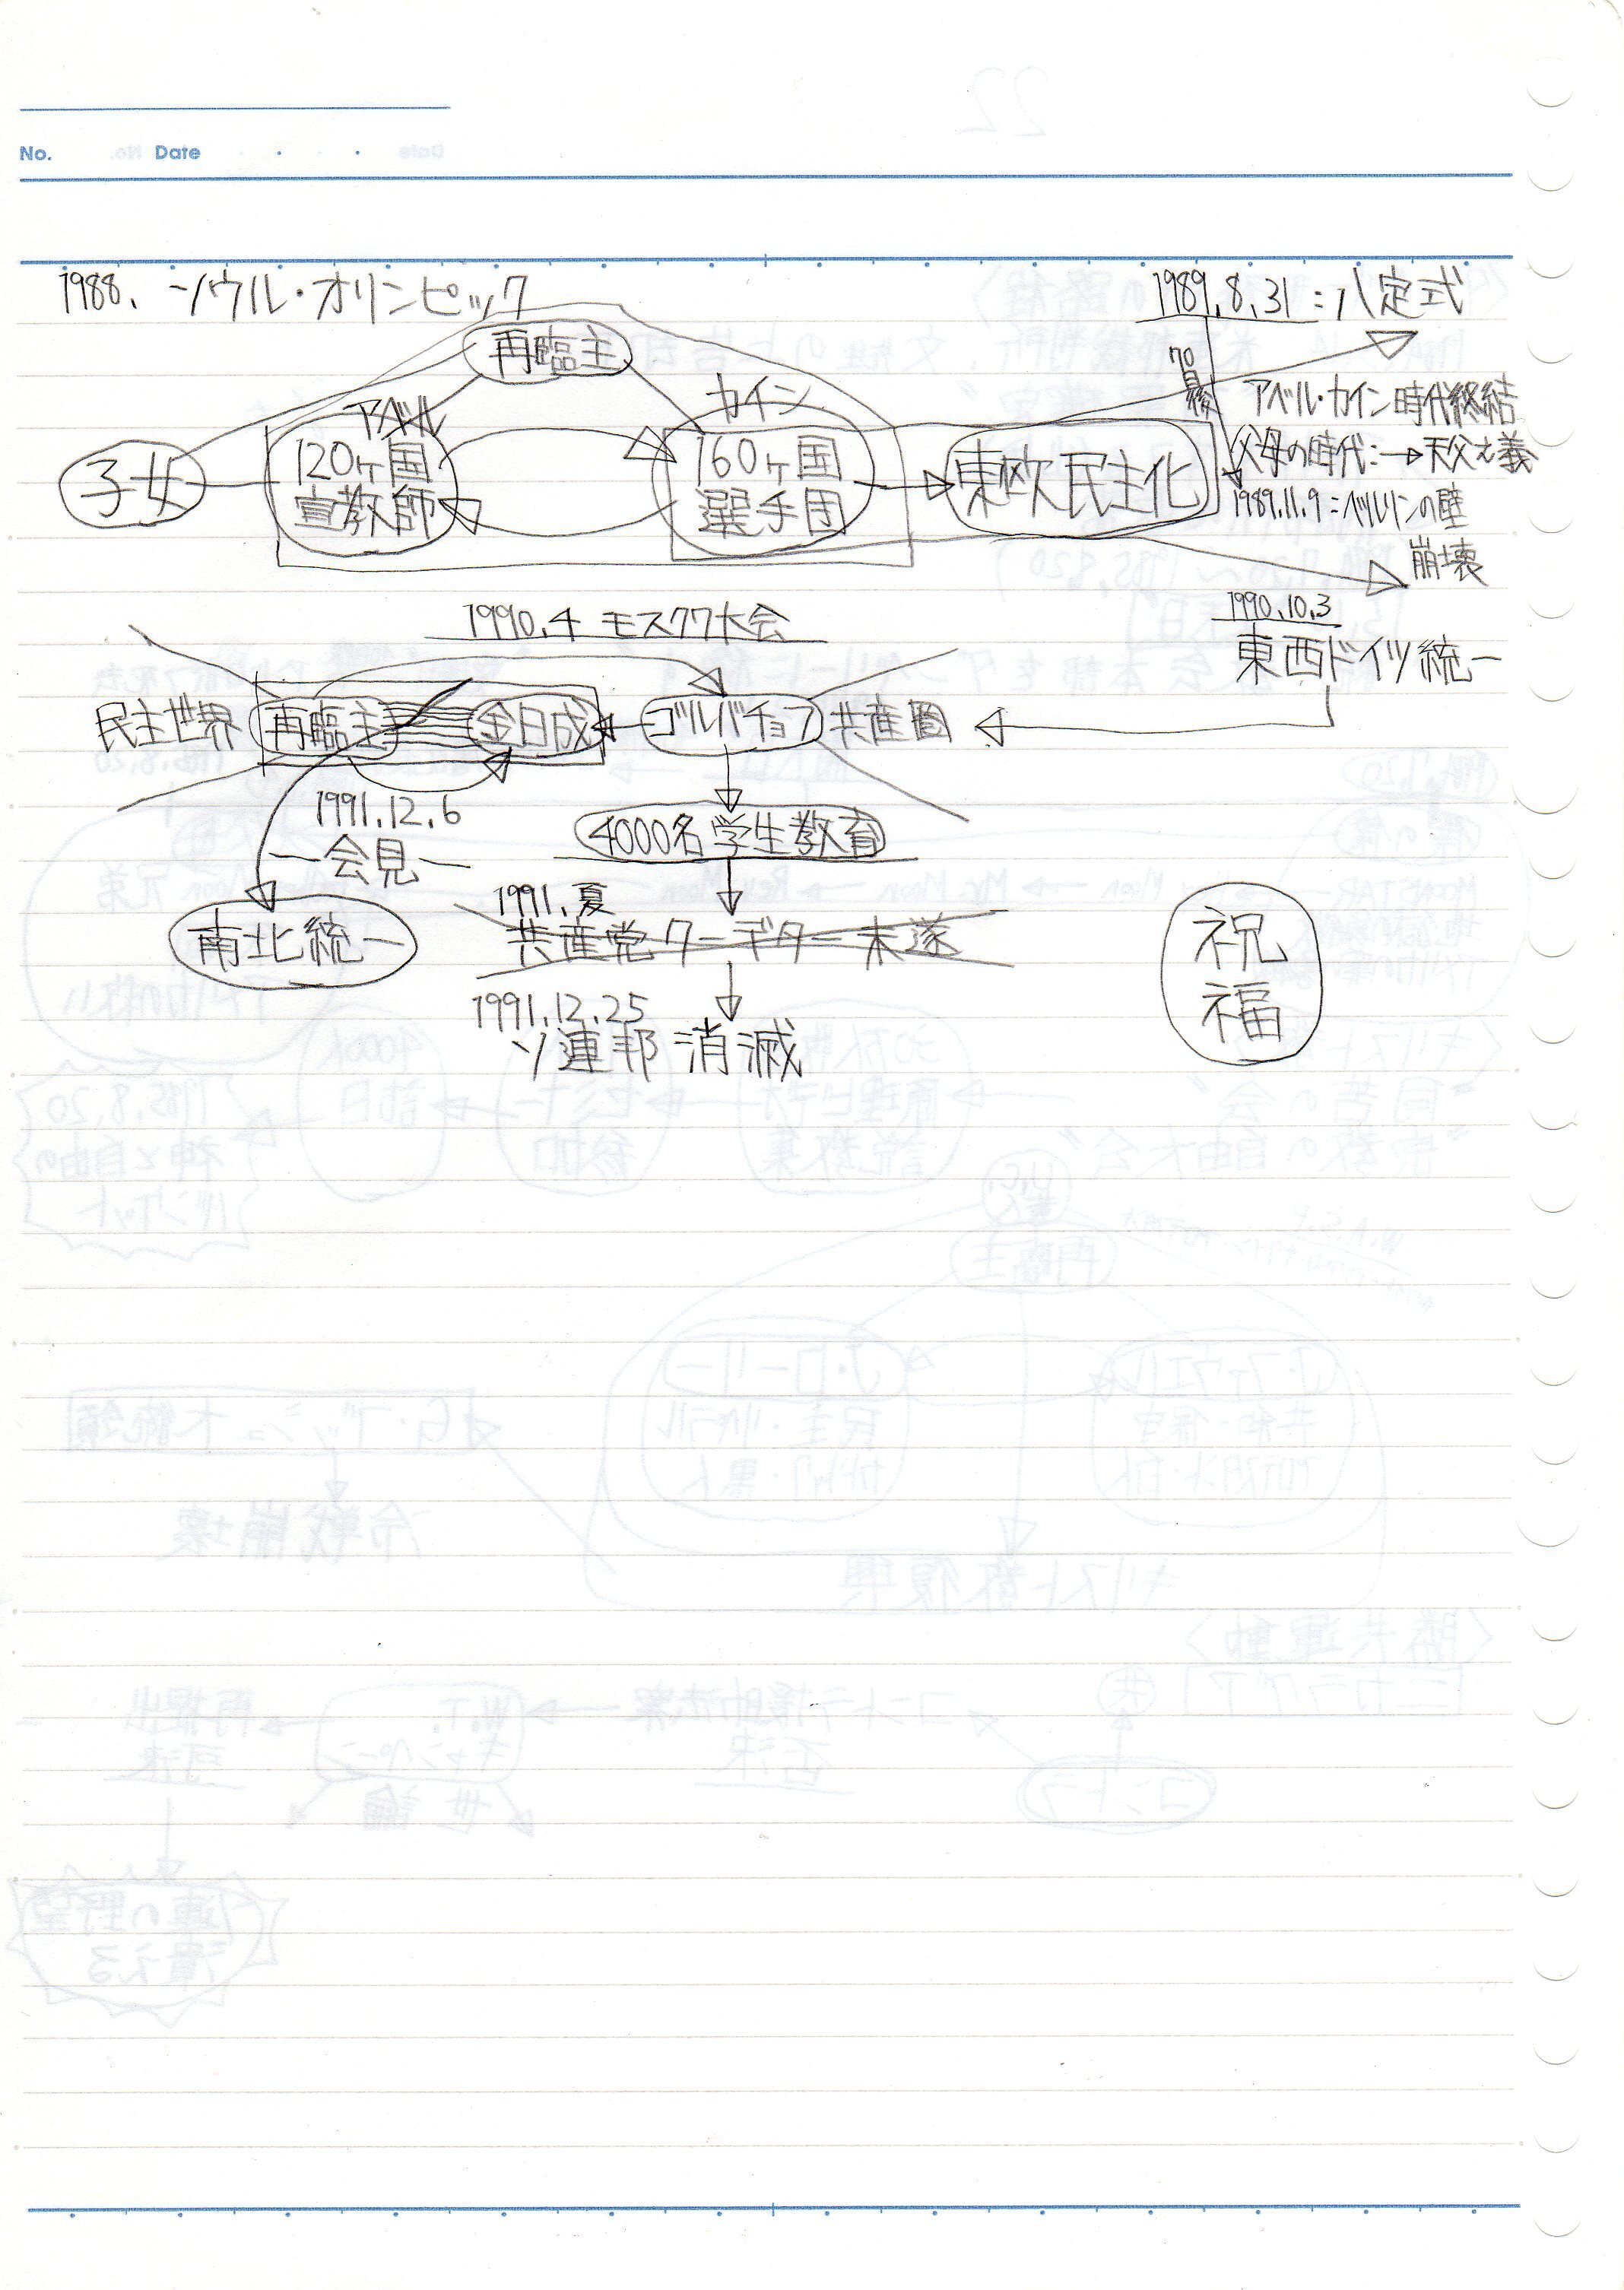 No.
Date
1988. ソウル・オリンピック
1989.8.31：八定式
再臨主
アベル
カイン
70日後
アベル・カイン時代終結
子女
120ヶ国
宣教師
160ヶ国
選手団
東欧民主化
父母の時代：→天父主義
1989.11.9：ベルリンの壁
崩壊
1990.4 モスクワ大会
1990.10.3
東西ドイツ統一
民主世界
再臨主
金日成
ゴルバチョフ
共産圏
1991.12.6
会見
4000名学生教育
南北統一
1991.夏
共産党クーデター未遂
1991.12.25
ソ連邦 消滅
祝
福